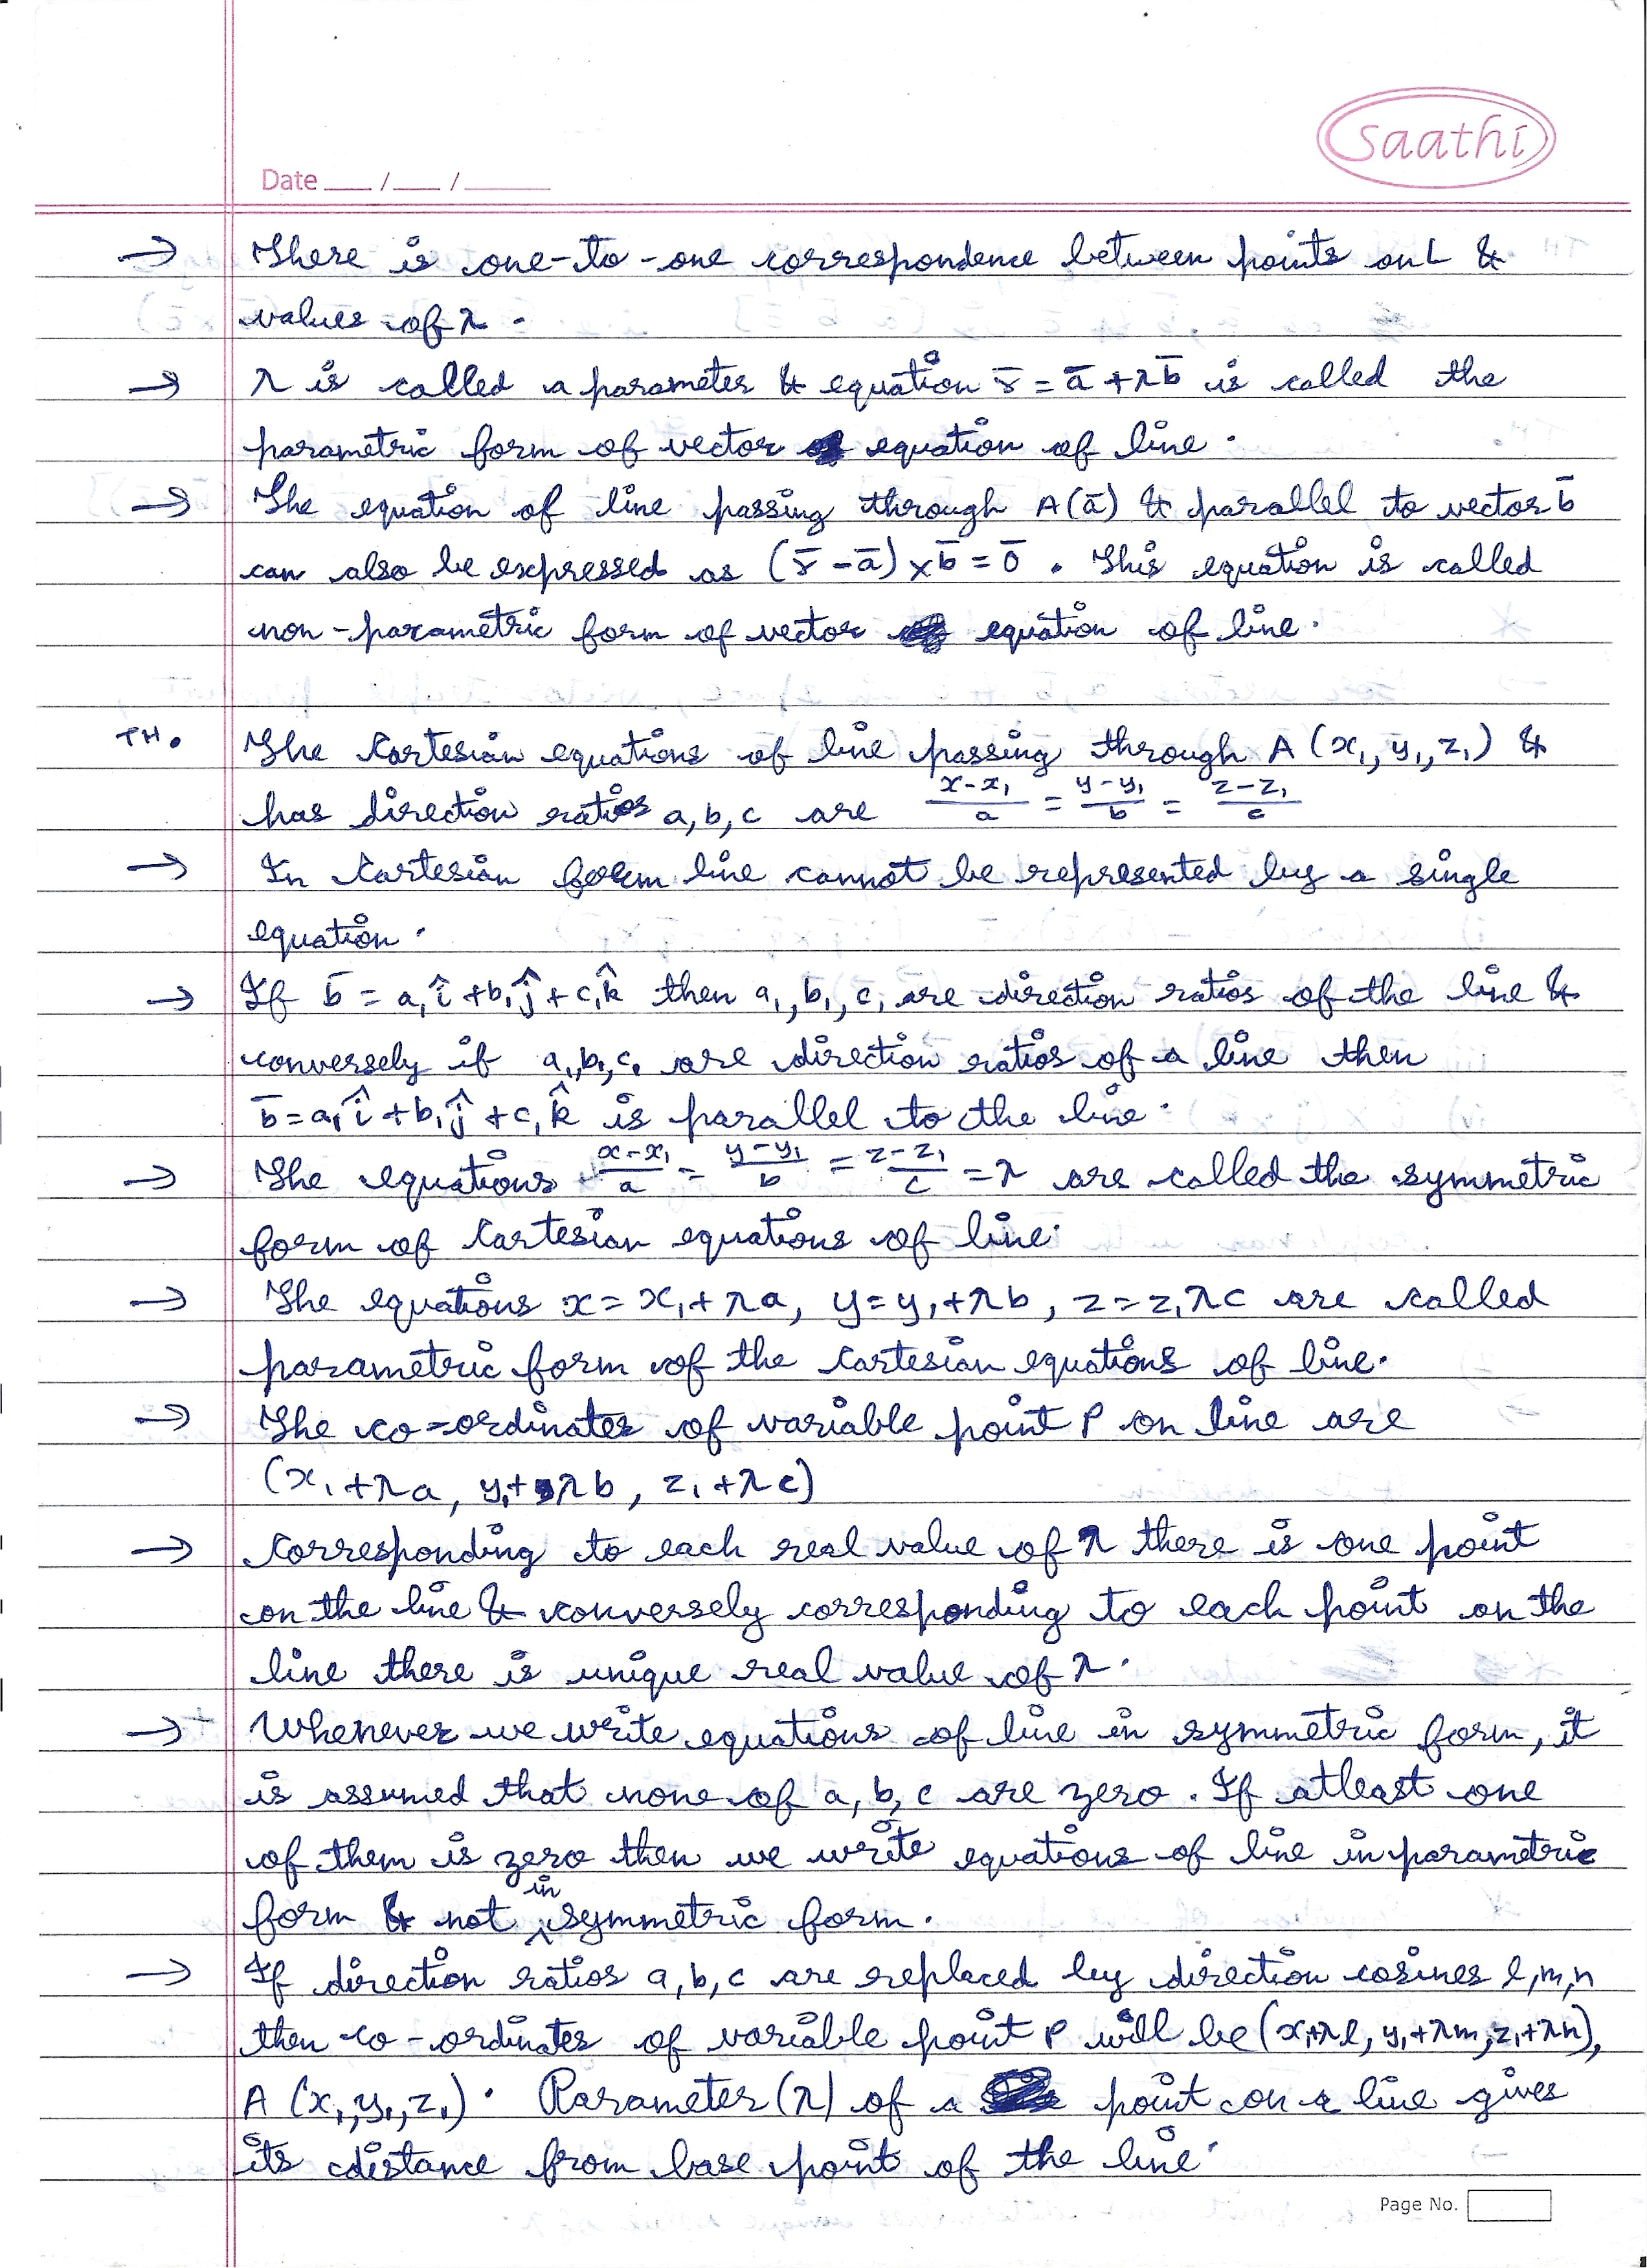 saathi
Date ___ /___ /_____
→ There is one-to-one correspondence between points on L &
values of λ.
→ λ is called a parameter & equation r̄ = ā + λb̄ is called the
parametric form of vector equation of line.
→ The equation of line passing through A(ā) & parallel to vector b̄
can also be expressed as (r̄ - ā) × b̄ = 0̄. This equation is called
non-parametric form of vector equation of line.
TH. The Cartesian equations of line passing through A (x₁, y₁, z₁) &
has direction ratios a, b, c are (x-x₁)/a = (y-y₁)/b = (z-z₁)/c
→ In Cartesian form line cannot be represented by a single
equation.
→ If b̄ = a₁î + b₁ĵ + c₁k̂ then a₁, b₁, c₁ are direction ratios of the line &
conversely if a₁, b₁, c₁ are direction ratios of a line then
b̄ = a₁î + b₁ĵ + c₁k̂ is parallel to the line.
→ The equations (x-x₁)/a = (y-y₁)/b = (z-z₁)/c = λ are called the symmetric
form of Cartesian equations of line.
→ The equations x = x₁ + λa, y = y₁ + λb, z = z₁λc are called
parametric form of the Cartesian equations of line.
→ The co-ordinates of variable point P on line are
(x₁ + λa, y₁ + λb, z₁ + λc)
→ Corresponding to each real value of λ there is one point
on the line & conversely corresponding to each point on the
line there is unique real value of λ.
→ Whenever we write equations of line in symmetric form, it
is assumed that none of a, b, c are zero. If atleast one
of them is zero then we write equations of line in parametric
form & not in symmetric form.
→ If direction ratios a, b, c are replaced by direction cosines l, m, n
then co-ordinates of variable point P will be (x₁+λl, y₁+λm, z₁+λn),
A (x₁, y₁, z₁). Parameter (λ) of a point on a line gives
its distance from base point of the line.
Page No.